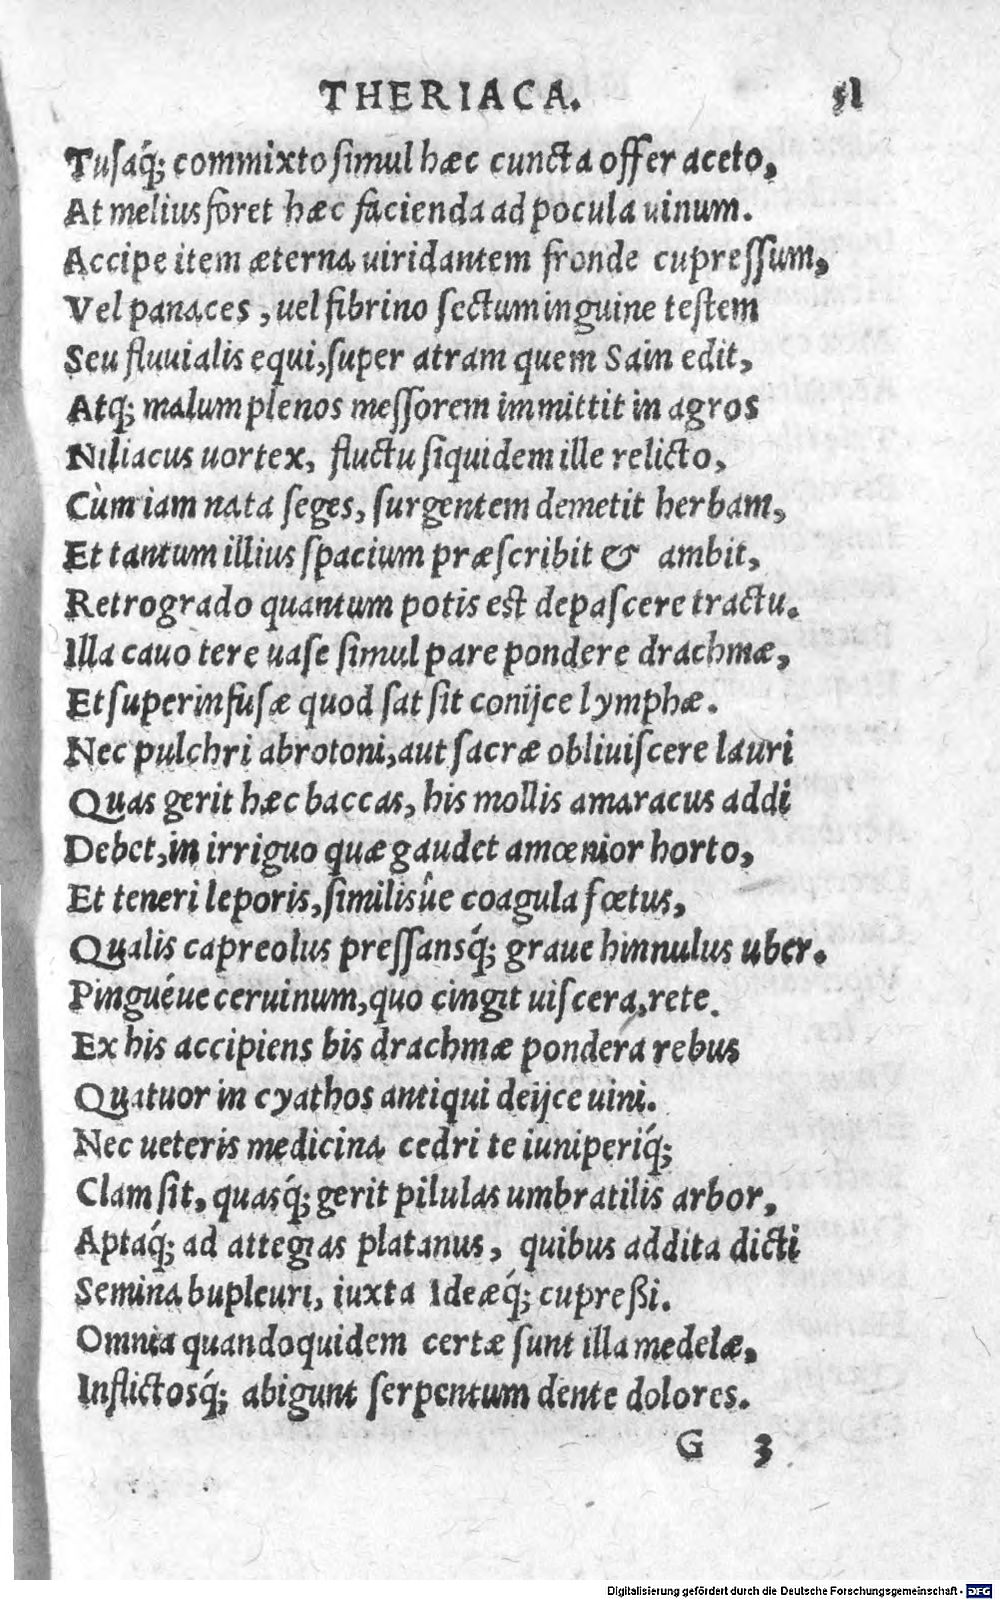 THERIACA. 51
Tusaq́; commixto simul hæc cuncta offer aceto,
At melius foret hæc facienda ad pocula uinum.
Accipe item æterna uiridantem fronde cupressum,
Vel panaces, uel fibrino sectum inguine testem
Seu fluuialis equi, super atram quem Sain edit,
Atq; malum plenos messorem immittit in agros
Niliacus uortex, fluctu siquidem ille relicto,
Cùm iam nata seges, surgentem demetit herbam,
Et tantum illius spacium præscribit & ambit,
Retrogrado quantum potis est depascere tractu.
Illa cauo tere uase simul pare pondere drachmæ,
Et superinfusæ quod sat sit conijce lymphæ.
Nec pulchri abrotoni, aut sacræ obliuiscere lauri
Quas gerit hæc baccas, his mollis amaracus addi
Debet, in irriguo quæ gaudet amœnior horto,
Et teneri leporis, similisûe coagula fœtus,
Qualis capreolus pressansq́; graue hinnulus uber.
Pinguéue ceruinum, quo cingit uiscera, rete.
Ex his accipiens bis drachmæ pondera rebus
Quatuor in cyathos antiqui deijce uini.
Nec ueteris medicina cedri te iuniperiq́;
Clam sit, quasq́; gerit pilulas umbratilis arbor,
Aptaq́; ad attegias platanus, quibus addita dicti
Semina bupleuri, iuxta Ideæq́; cupreßi.
Omnia quandoquidem certæ sunt illa medelæ,
Inflictosq́; abigunt serpentum dente dolores.
G 3
Digitalisierung gefördert durch die Deutsche Forschungsgemeinschaft - DFG